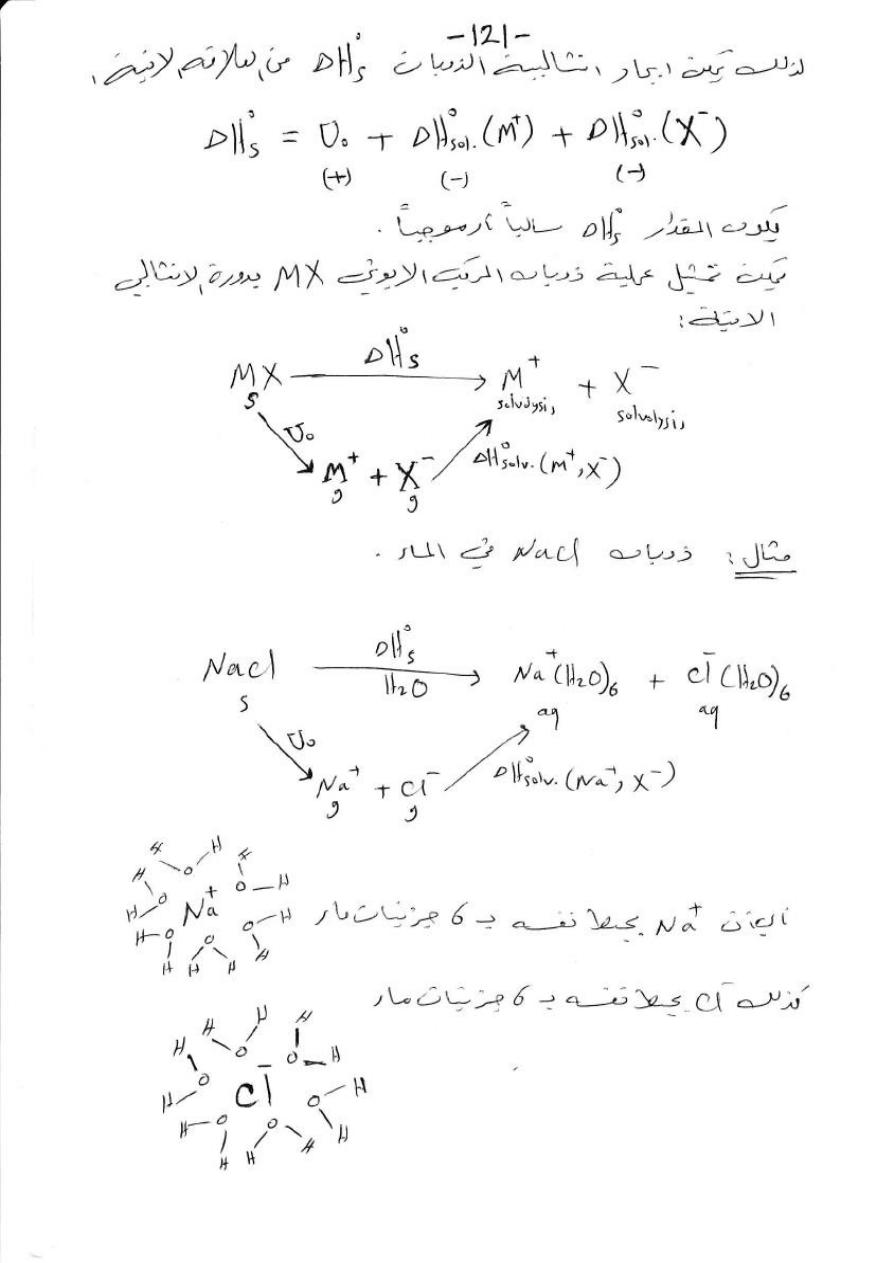 -121-
لذلك يمكن ايجاد انثالبية الذوبان DH°s من العلاقة الاتية:
DH°s = U₀ + DH°sol.(M⁺) + DH°sol.(X⁻)
(+) (-) (-)
يكون المقدار DH°s سالباً أو موجباً.
يمكن تمثيل عملية ذوبان المركب الايوني MX بدورة الانثالبي
الاتية:
DH°s
MX → M⁺ + X⁻
s solvolysis solvolysis
U₀
M⁺ + X⁻ DH°solv.(M⁺, X⁻)
g g
مثال: ذوبان NaCl في الماء.
DH°s
NaCl → Na⁺(H₂O)₆ + Cl⁻(H₂O)₆
H₂O
s aq aq
U₀
Na⁺ + Cl⁻ DH°solv.(Na⁺, X⁻)
g g
H H H
H O O-H
H-O Na⁺ O-H
H-O O H
H H H
Na⁺ يحيط نفسه بـ 6 جزيئات ماء
كذلك Cl⁻ يحيط نفسه بـ 6 جزيئات ماء
H H H
H O O-H
O Cl⁻ O-H
H
H-O O H
H H H